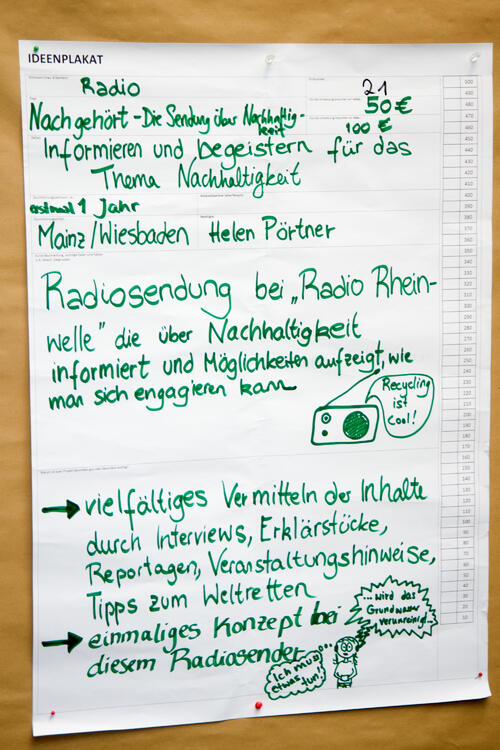 IDEENPLAKAT
Radio
21
Nachgehört - Die Sendung über Nachhaltig-
keit
50 €
100 €
Informieren und begeistern für das
Thema Nachhaltigkeit
erstmal 1 Jahr
Mainz/Wiesbaden
Helen Pörtner
Radiosendung bei „Radio Rhein-
welle" die über Nachhaltigkeit
informiert und Möglichkeiten aufzeigt, wie
man sich engagieren kann
Recycling
ist
cool!
→ vielfältiges Vermitteln der Inhalte
durch Interviews, Erklärstücke,
Reportagen, Veranstaltungshinweise,
Tipps zum Weltretten
→ einmaliges Konzept bei
diesem Radiosender
... wird das
Grundwasser
verunreinigt...
Ich muss
etwas tun!
500
490
480
470
460
450
440
430
420
410
400
390
380
370
360
350
340
330
320
310
300
290
280
270
260
250
240
230
220
210
200
190
180
170
160
150
140
130
120
110
100
90
80
70
60
50
40
30
20
10